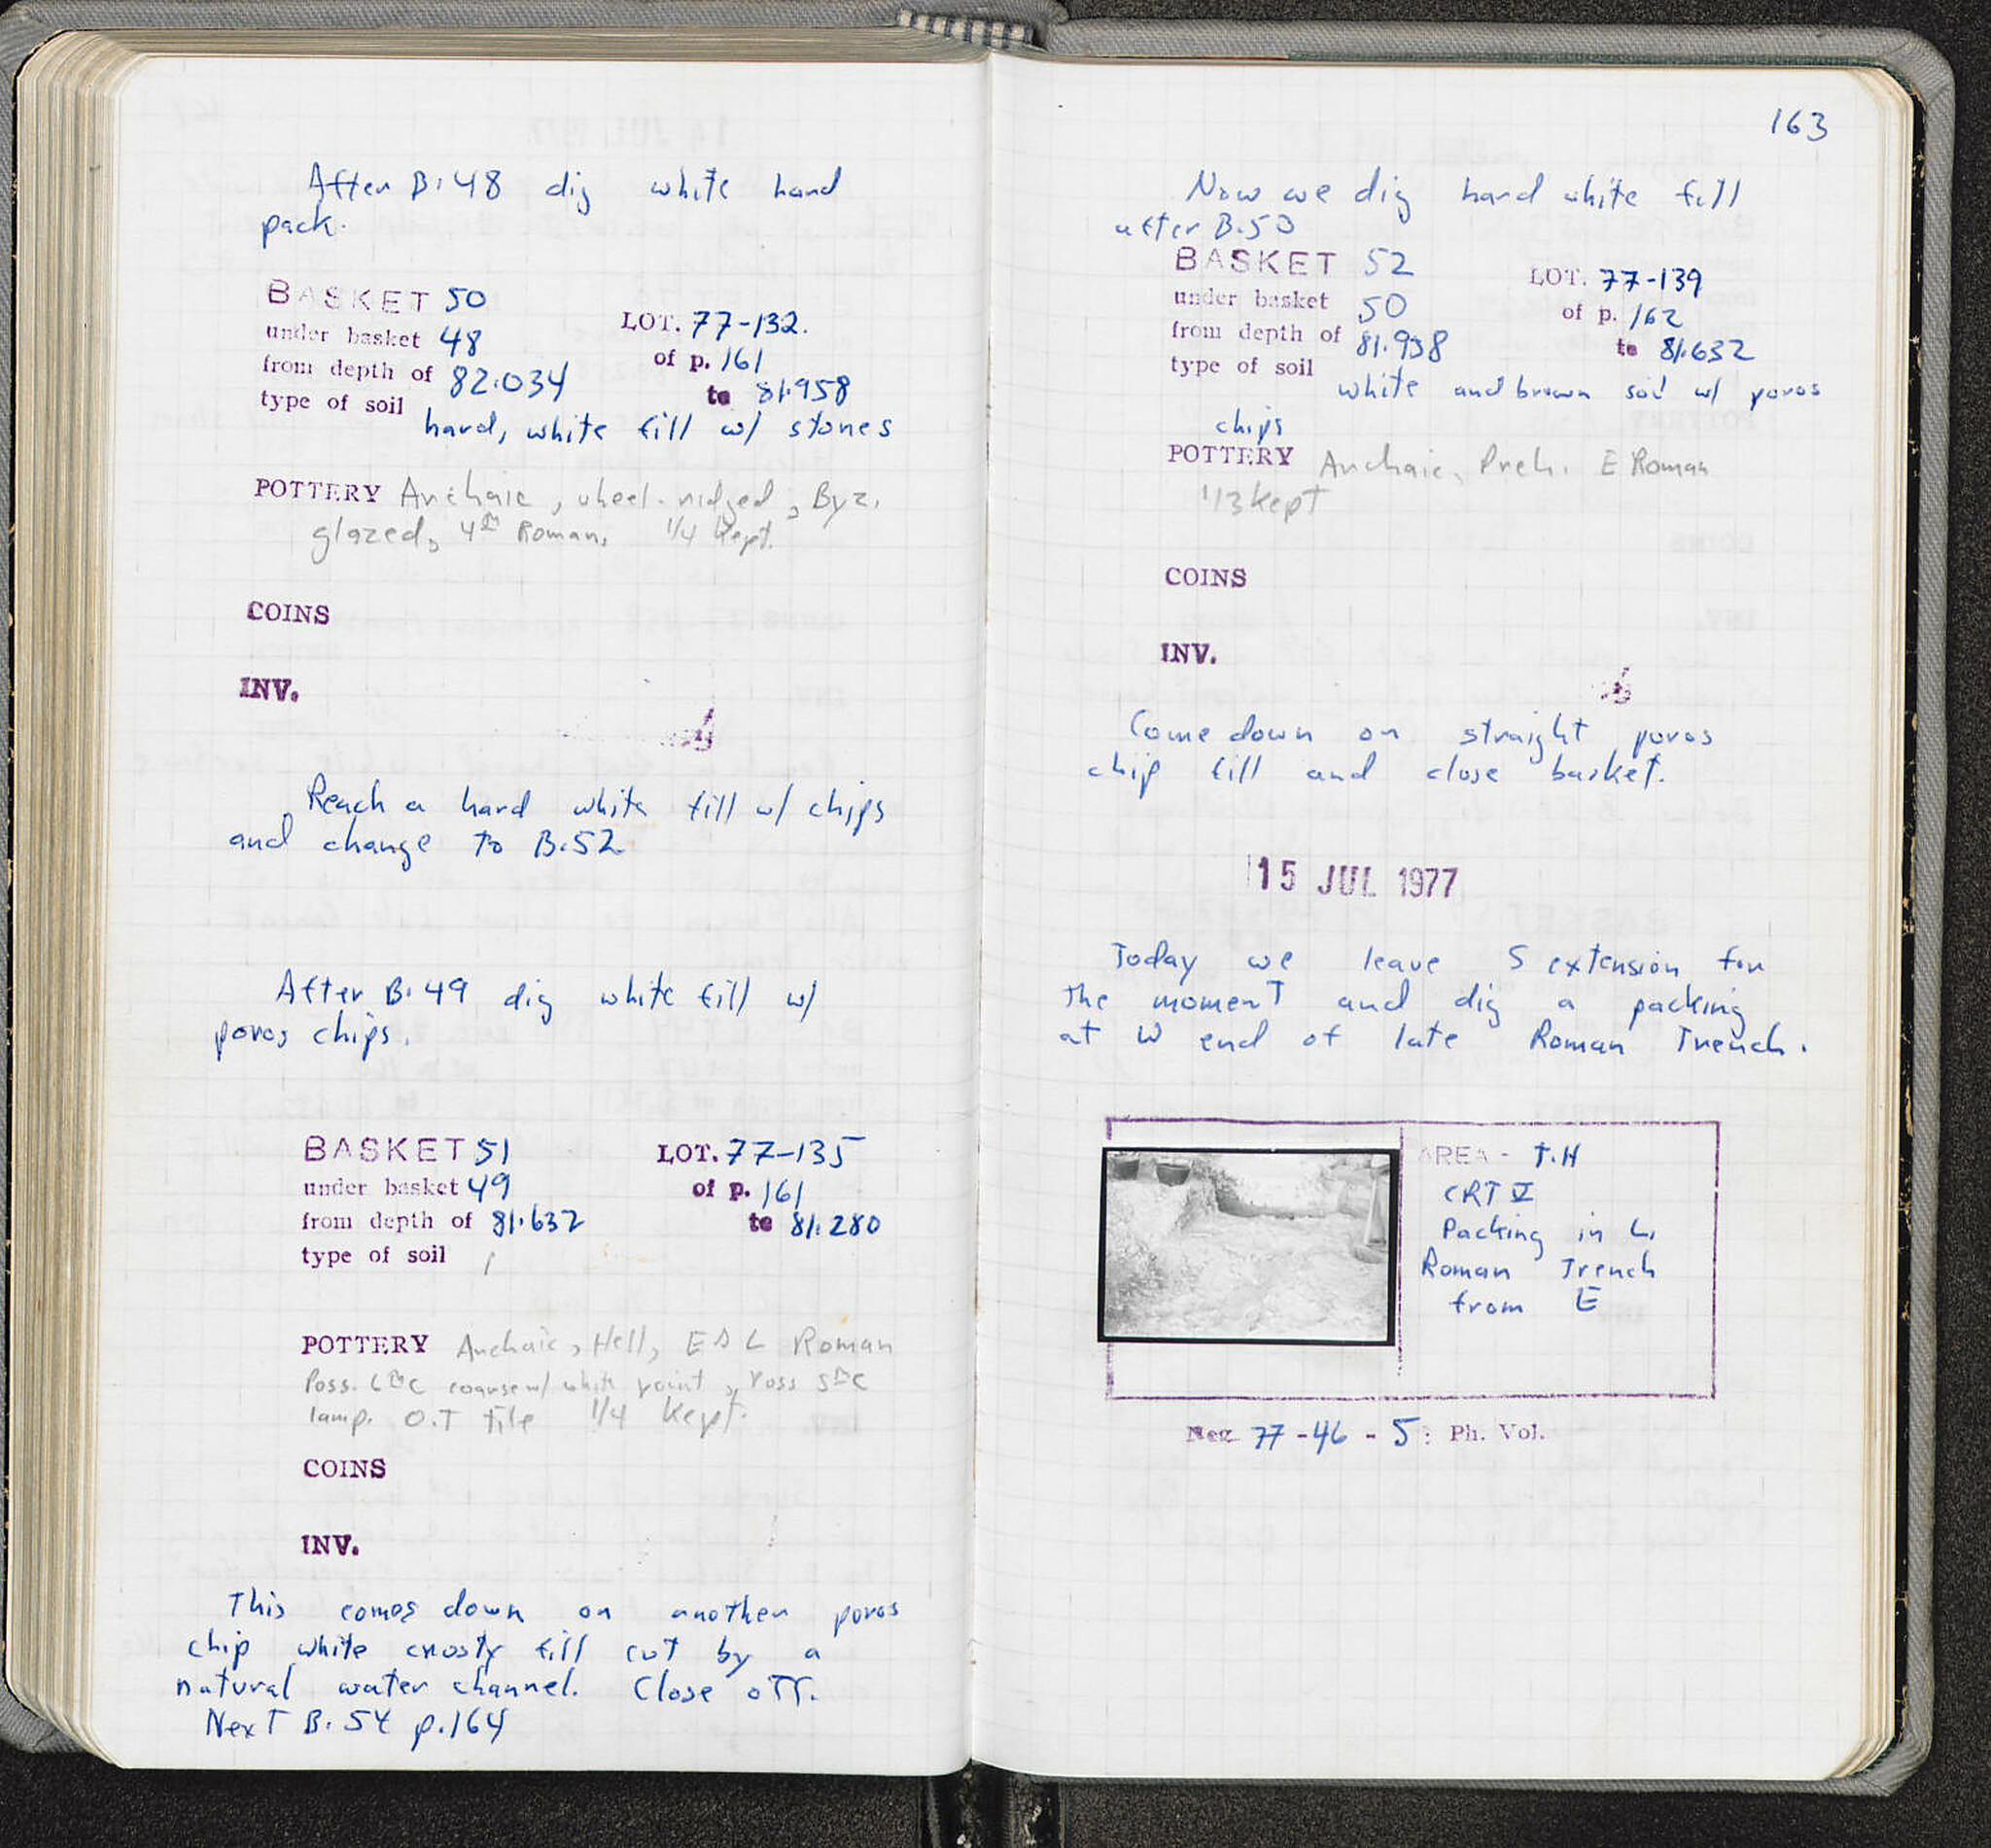 After B:48 dig white hard
pack.
BASKET 50
under basket 48
LOT. 77-132.
from depth of 82.034
of p. 161
to 81.958
type of soil hard, white fill w/ stones
POTTERY Archaic, wheel-ridged, Byz.
glazed, 4th Roman, 1/4 kept.
COINS
INV.
Reach a hard white fill w/ chips
and change to B.52
After B:49 dig white fill w/
poros chips.
BASKET 51
LOT. 77-135
under basket 49
of p. 161
from depth of 81.632
to 81.280
type of soil
POTTERY Archaic, Hell, E & L Roman
Poss. coarse w/ white paint, Poss 5thC
lamp. O.T tile 1/4 kept.
COINS
INV.
This comes down on another poros
chip white crusty fill cut by a
natural water channel. Close off.
Next B. 54 p.164
163
Now we dig hard white fill
after B.50
BASKET 52
LOT. 77-139
under basket 50
of p. 162
from depth of 81.958
to 81.632
type of soil white and brown soil w/ poros
chips
POTTERY Archaic, Preh. E Roman
1/3 kept
COINS
INV.
Come down on straight poros
chip fill and close basket.
15 JUL 1977
Today we leave S extension for
the moment and dig a packing
at W end of late Roman Trench.
AREA - T.H
CRT V
Packing in L.
Roman Trench
from E
Neg. 77-46-5: Ph. Vol.